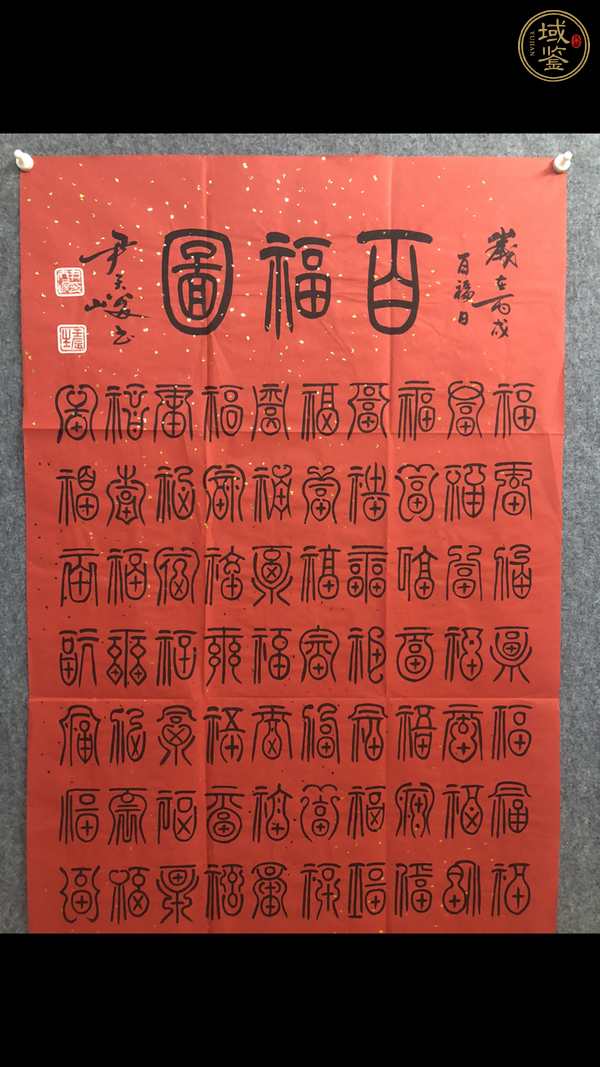 域鉴
YUJIAN
歲在丙戌
百福日
百福圖
尹
福福福福福福福福福福
福福福福福福福福福福
福福福福福福福福福福
福福福福福福福福福福
福福福福福福福福福福
福福福福福福福福福福
福福福福福福福福福福